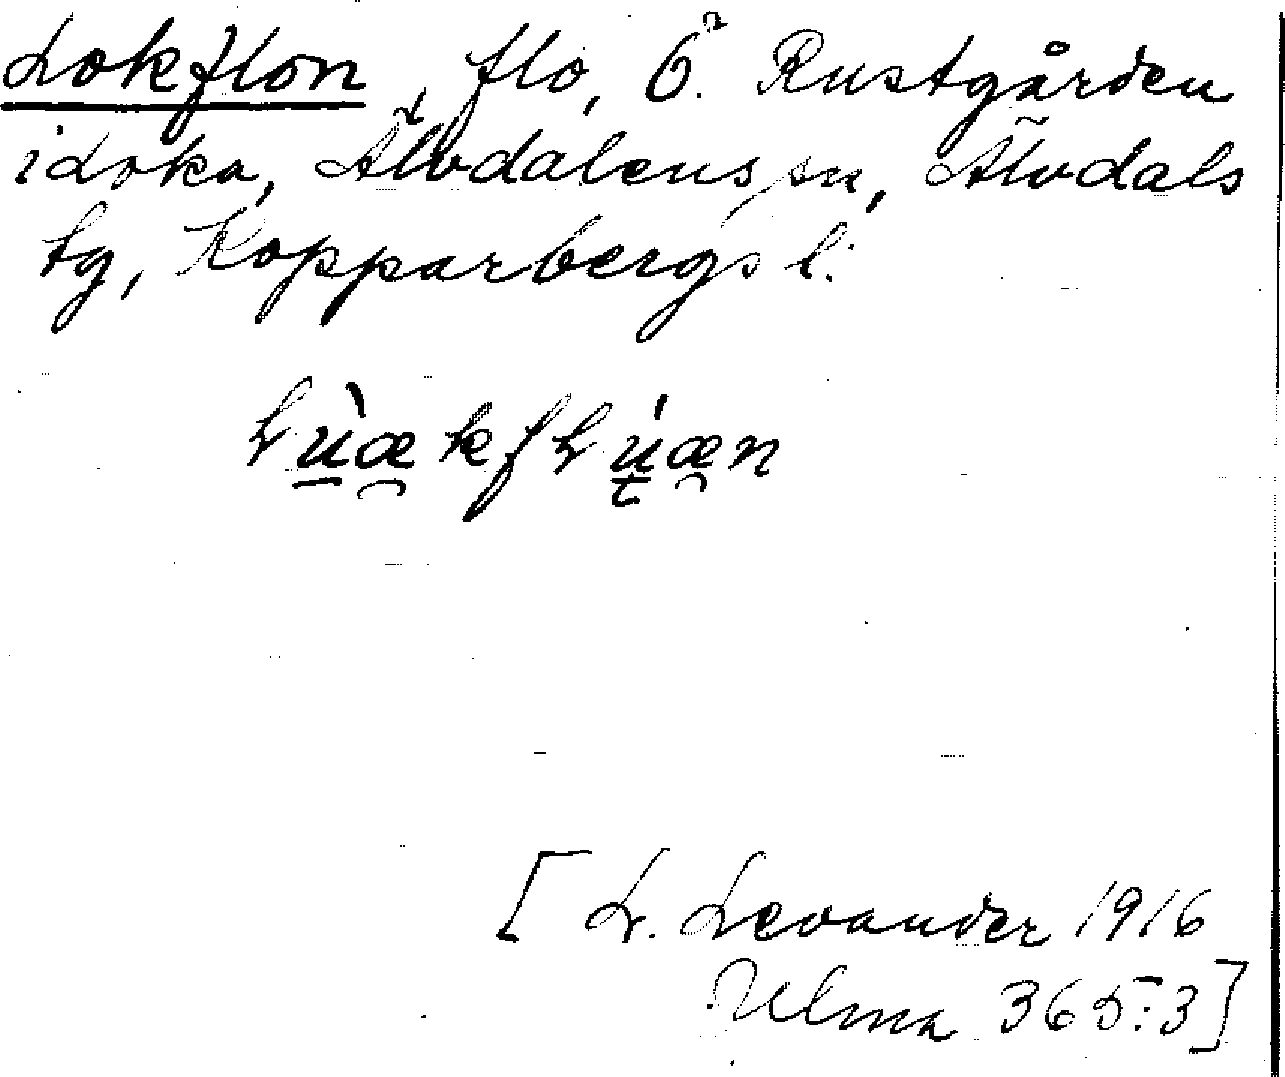 Lokflon, flo, Ö. Rustgården
i Loka, Älvdalens sn, Älvdals
tg, Kopparbergs l.
LùækfLúæn
[L. Levander 1916
Ulma 365:3]